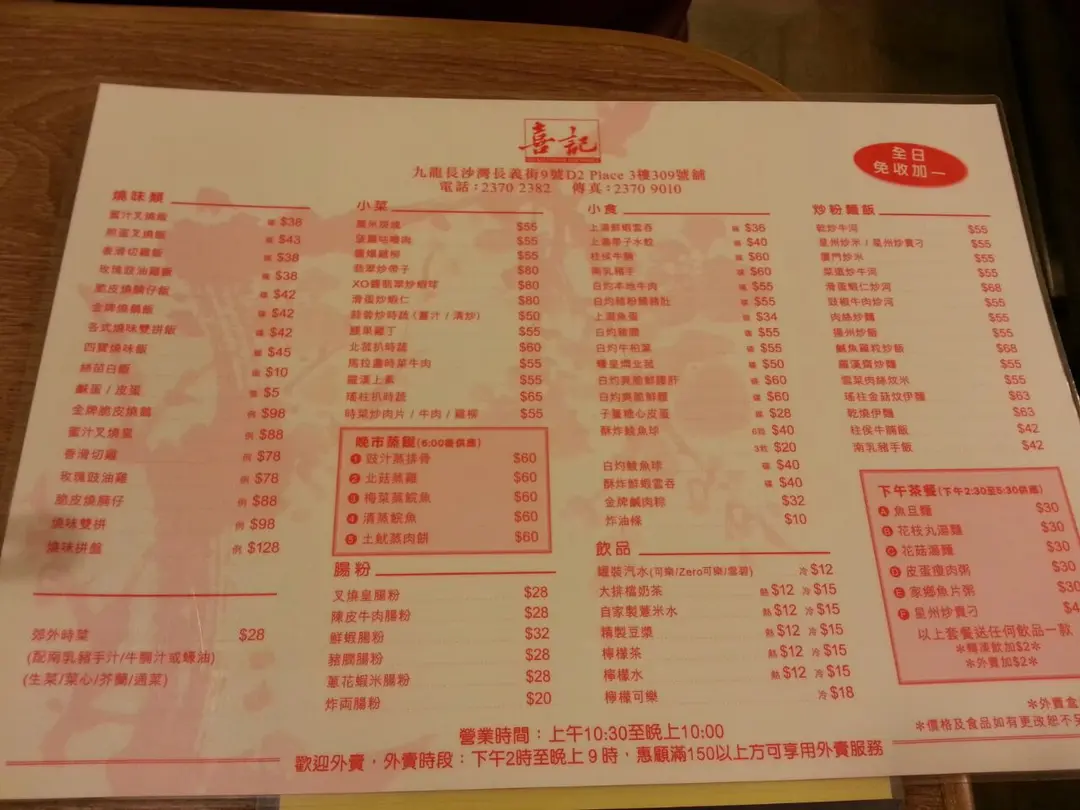 喜記
九龍長沙灣長義街9號D2 Place 3樓309號舖
電話：2370 2382 傳真：2370 9010
全日
免收加一
燒味類
蜜汁叉燒飯 碟 $38
煎蛋叉燒飯 碟 $43
香滑切雞飯 碟 $38
玫瑰豉油雞飯 碟 $38
脆皮燒腩仔飯 碟 $42
金牌燒鵝飯 碟 $42
各式燒味雙拼飯 碟 $42
四寶燒味飯 碟 $45
絲苗白飯 $10
鹹蛋 / 皮蛋 $5
金牌脆皮燒鵝 例 $98
蜜汁叉燒皇 例 $88
香滑切雞 例 $78
玫瑰豉油雞 例 $78
脆皮燒腩仔 例 $88
燒味雙拼 例 $98
燒味拼盤 例 $128
郊外時菜 $28
(配南乳豬手汁/牛腩汁或蠔油)
(生菜/菜心/芥蘭/通菜)
小菜
$55
菠蘿咕嚕肉 $55
醬爆雞柳 $55
翡翠炒帶子 $80
XO醬翡翠炒蝦球 $80
滑蛋炒蝦仁 $80
蒜蓉炒時蔬 (薑汁 / 清炒) $50
腰果雞丁 $55
北菰扒時蔬 $60
馬拉盞時菜牛肉 $55
羅漢上素 $55
瑤柱扒時蔬 $65
時菜炒肉片 / 牛肉 / 雞柳 $55
晚市蒸餸(6:00後供應)
1 豉汁蒸排骨 $60
2 北菇蒸雞 $60
3 梅菜蒸鯇魚 $60
4 清蒸鯇魚 $60
5 土魷蒸肉餅 $60
腸粉
叉燒皇腸粉 $28
陳皮牛肉腸粉 $28
鮮蝦腸粉 $32
豬膶腸粉 $28
蔥花蝦米腸粉 $28
炸両腸粉 $20
小食
上湯鮮蝦雲吞 碗 $36
上湯帶子水餃 碗 $40
柱侯牛腩 碗 $60
南乳豬手 碗 $60
白灼本地牛肉 碟 $55
白灼豬粉腸豬肚 碟 $55
上湯魚蛋 碗 $34
白灼豬膶 碟 $55
白灼牛柏葉 碟 $55
蠔皇炆北菰 碟 $50
白灼爽脆鮮腰肝 碟 $60
白灼爽脆鮮腰 碟 $60
子薑糖心皮蛋 $28
酥炸鯪魚球 6粒 $40
3粒 $20
白灼鯪魚球 碟 $40
酥炸鮮蝦雲吞 碟 $40
金牌鹹肉粽 $32
炸油條 $10
飲品
罐裝汽水(可樂/Zero可樂/雪碧) 冷 $12
大排檔奶茶 熱 $12 冷 $15
自家製薏米水 熱 $12 冷 $15
精製豆漿 熱 $12 冷 $15
檸檬茶 熱 $12 冷 $15
檸檬水 熱 $12 冷 $15
檸檬可樂 冷 $18
炒粉麵飯
乾炒牛河 $55
星州炒米 / 星州炒貴刁 $55
廈門炒米 $55
菜遠炒牛河 $55
滑蛋蝦仁炒河 $68
豉椒牛肉炒河 $55
肉絲炒麵 $55
揚州炒飯 $55
鹹魚雞粒炒飯 $68
羅漢齋炒麵 $55
雪菜肉絲炆米 $55
瑤柱金菇炆伊麵 $63
乾燒伊麵 $63
柱侯牛腩飯 $42
南乳豬手飯 $42
下午茶餐(下午2:30至5:30供應)
A 魚旦麵 $30
B 花枝丸湯麵 $30
C 花菇湯麵 $30
D 皮蛋瘦肉粥 $30
E 家鄉魚片粥 $30
F 星州炒貴刁 $4
以上套餐送任何飲品一款
*轉凍飲加$2*
*外賣加$2*
*外賣盒
*價格及食品如有更改恕不另
營業時間：上午10:30至晚上10:00
歡迎外賣，外賣時段：下午2時至晚上9時，惠顧滿150以上方可享用外賣服務